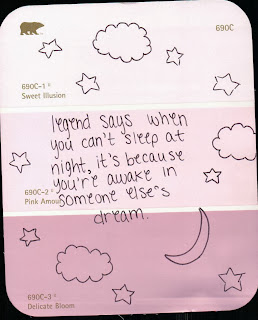 690C
690C-1
Sweet Illusion
legend says when
you can't sleep at
night, it's because
you're awake in
someone else's
dream.
690C-2
Pink Amour
690C-3
Delicate Bloom